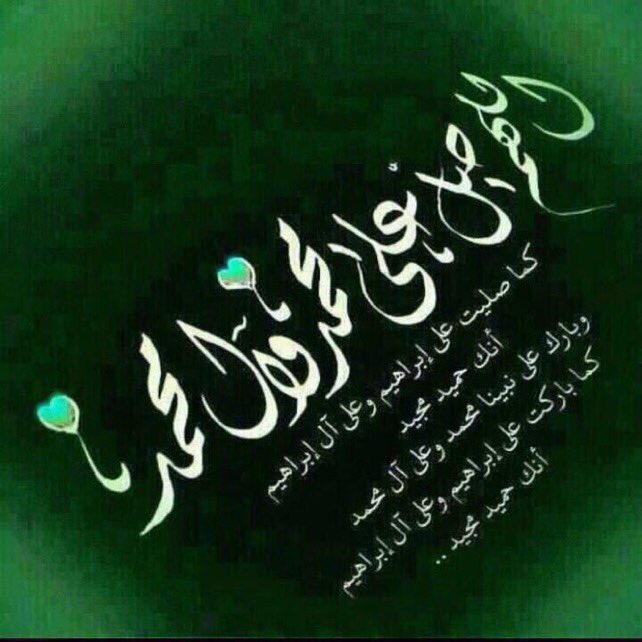 اللهم صل على محمد وآل محمد
كما صليت على إبراهيم وعلى آل إبراهيم
أنك حميد مجيد
وبارك على نبينا محمد وعلى آل محمد
كما باركت على إبراهيم وعلى آل إبراهيم
أنك حميد مجيد ..